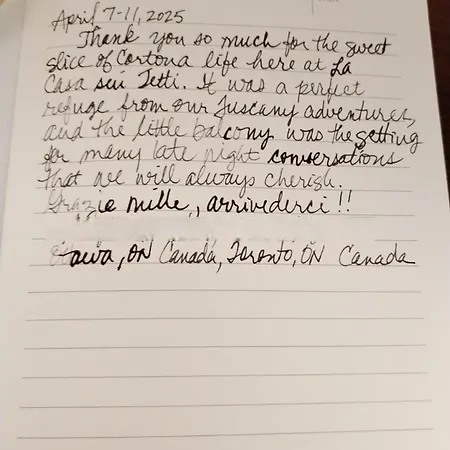 April 7-11, 2025
Thank you so much for the sweet
slice of Cortona life here at La
Casa sui Tetti. It was a perfect
refuge from our Tuscany adventures,
and the little balcony was the setting
for many late night conversations
that we will always cherish.
Grazie mille, arrivederci!!
Ottawa, ON Canada, Toronto, ON Canada